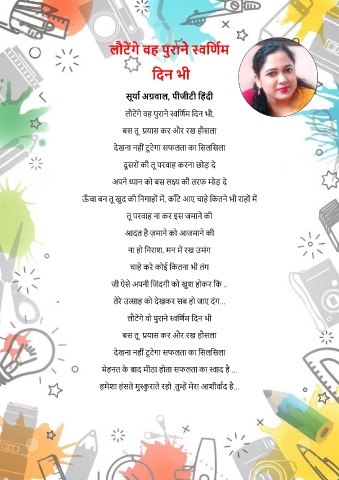 लौटेंगे वह पुराने स्वर्णिम
दिन भी
सूर्या अग्रवाल, पीजीटी हिंदी
लौटेंगे वह पुराने स्वर्णिम दिन भी,
बस तू प्रयास कर और रख हौसला
देखना नहीं टूटेगा सफलता का सिलसिला
दूसरों की तू परवाह करना छोड़ दे
अपने ध्यान को बस लक्ष्य की तरफ मोड़ दे
ऊँचा बन तू खुद की निगाहों में, काँटे आए चाहे कितने भी राहों में
तू परवाह ना कर इस जमाने की
आदत है ज़माने को आजमाने की
ना हो निराश, मन में रख उमंग
चाहे करे कोई कितना भी तंग
जी ऐसे अपनी जिंदगी को खुश होकर कि ..
तेरे उत्साह को देखकर सब हो जाए दंग...
लौटेंगे वो पुराने स्वर्णिम दिन भी
बस तू प्रयास कर और रख हौसला
देखना नहीं टूटेगा सफलता का सिलसिला
मेहनत के बाद मीठा होता सफलता का स्वाद है ...
हमेशा हंसते मुस्कुराते रहो ,तुम्हें मेरा आशीर्वाद है...